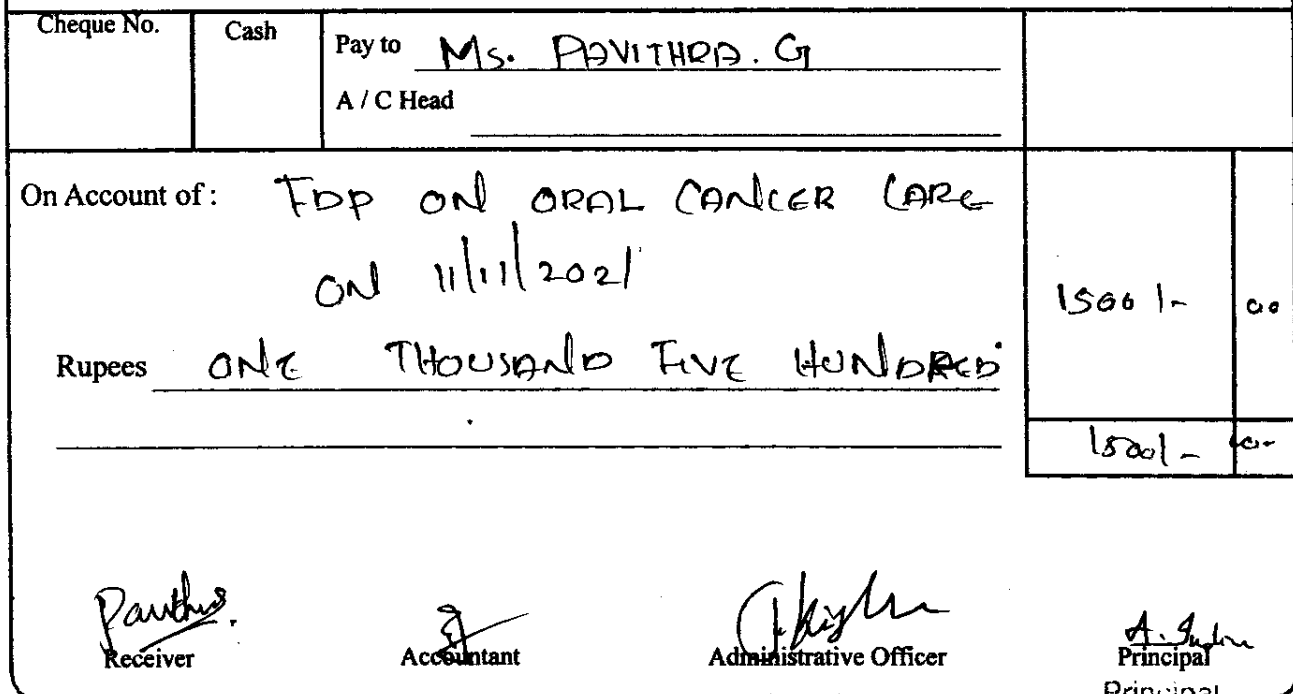 Cheque No. Cash Pay to Ms. PAVITHRA. G
A / C Head
On Account of : FDP ON ORAL CANCER CARE
ON 11/11/2021
1500/- 00
Rupees ONE THOUSAND FIVE HUNDRED
1500/- 00
Receiver Accountant Administrative Officer Principal
Principal